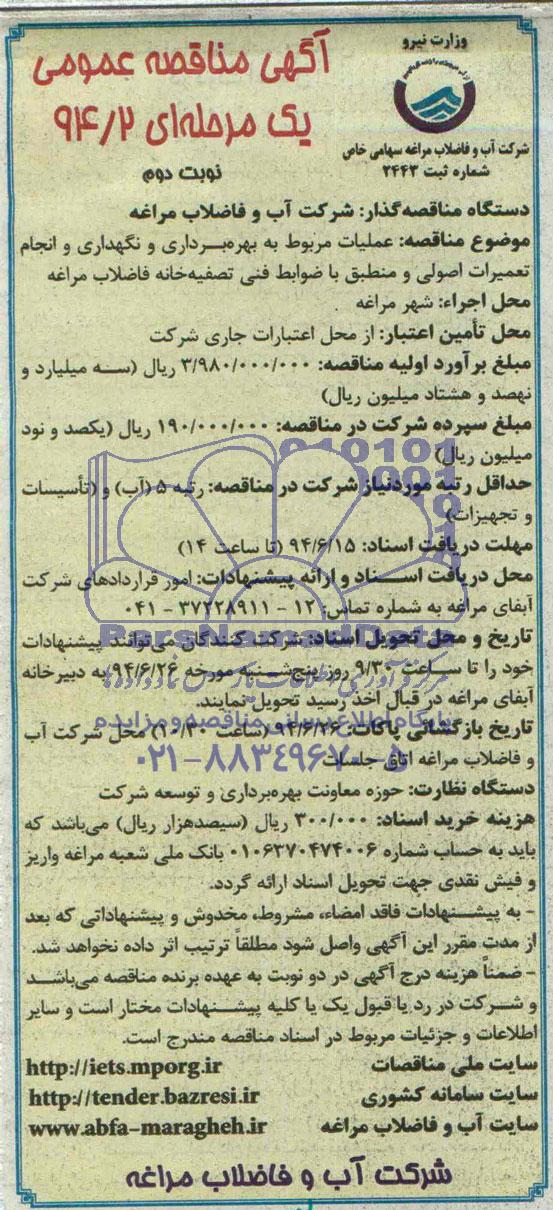 وزارت نیرو
شرکت آب و فاضلاب مراغه سهامی خاص
شماره ثبت ۲۴۴۳
آگهی مناقصه عمومی
یک مرحله‌ای ۹۴/۲
نوبت دوم
دستگاه مناقصه‌گذار: شرکت آب و فاضلاب مراغه
موضوع مناقصه: عملیات مربوط به بهره‌برداری و نگهداری و انجام
تعمیرات اصولی و منطبق با ضوابط فنی تصفیه‌خانه فاضلاب مراغه
محل اجراء: شهر مراغه
محل تأمین اعتبار: از محل اعتبارات جاری شرکت
مبلغ برآورد اولیه مناقصه: ۳/۹۸۰/۰۰۰/۰۰۰ ریال (سه میلیارد و
نهصد و هشتاد میلیون ریال)
مبلغ سپرده شرکت در مناقصه: ۱۹۰/۰۰۰/۰۰۰ ریال (یکصد و نود
میلیون ریال)
حداقل رتبه موردنیاز شرکت در مناقصه: رتبه ۵ (آب) و (تأسیسات
و تجهیزات)
مهلت دریافت اسناد: ۹۴/۶/۱۵ (تا ساعت ۱۴)
محل دریافت اسناد و ارائه پیشنهادات: امور قراردادهای شرکت
آبفای مراغه به شماره تماس: ۱۲ - ۳۷۲۲۸۹۱۱ - ۰۴۱
تاریخ و محل تحویل اسناد: شرکت کنندگان می‌توانند پیشنهادات
خود را تا ساعت ۹/۳۰ روز پنج‌شنبه مورخه ۹۴/۶/۲۶ به دبیرخانه
آبفای مراغه در قبال اخذ رسید تحویل نمایند.
تاریخ بازگشائی پاکات: ۹۴/۶/۲۶ (ساعت ۱۰/۳۰) محل شرکت آب
و فاضلاب مراغه اتاق جلسات
دستگاه نظارت: حوزه معاونت بهره‌برداری و توسعه شرکت
هزینه خرید اسناد: ۳۰۰/۰۰۰ ریال (سیصدهزار ریال) می‌باشد که
باید به حساب شماره ۰۱۰۶۳۷۰۴۷۴۰۰۶ بانک ملی شعبه مراغه واریز
و فیش نقدی جهت تحویل اسناد ارائه گردد.
- به پیشنهادات فاقد امضاء، مشروط، مخدوش و پیشنهاداتی که بعد
از مدت مقرر این آگهی واصل شود مطلقاً ترتیب اثر داده نخواهد شد.
- ضمناً هزینه درج آگهی در دو نوبت به عهده برنده مناقصه می‌باشد
و شرکت در رد یا قبول یک یا کلیه پیشنهادات مختار است و سایر
اطلاعات و جزئیات مربوط در اسناد مناقصه مندرج است.
سایت ملی مناقصات http://iets.mporg.ir
سایت سامانه کشوری http://tender.bazresi.ir
سایت آب و فاضلاب مراغه www.abfa-maragheh.ir
شرکت آب و فاضلاب مراغه
ParsNamadData
پایگاه اطلاع رسانی مناقصه و مزایده
۰۲۱-۸۸۳۴۹۶۷۰-۵